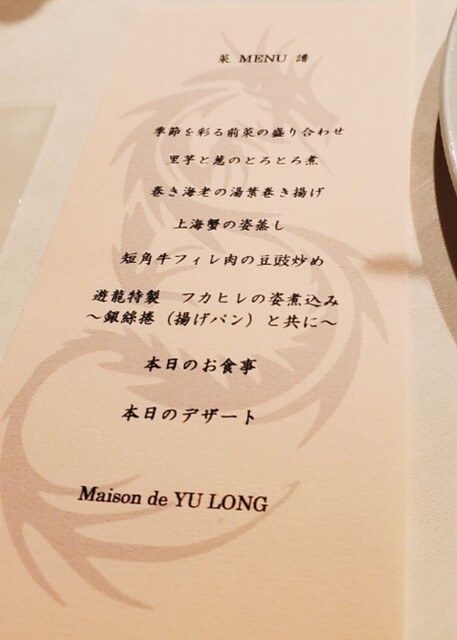 菜 MENU 譜
季節を彩る前菜の盛り合わせ
里芋と葱のとろとろ煮
巻き海老の湯葉巻き揚げ
上海蟹の姿蒸し
短角牛フィレ肉の豆豉炒め
遊龍特製　フカヒレの姿煮込み
～銀絲捲（揚げパン）と共に～
本日のお食事
本日のデザート
Maison de YU LONG